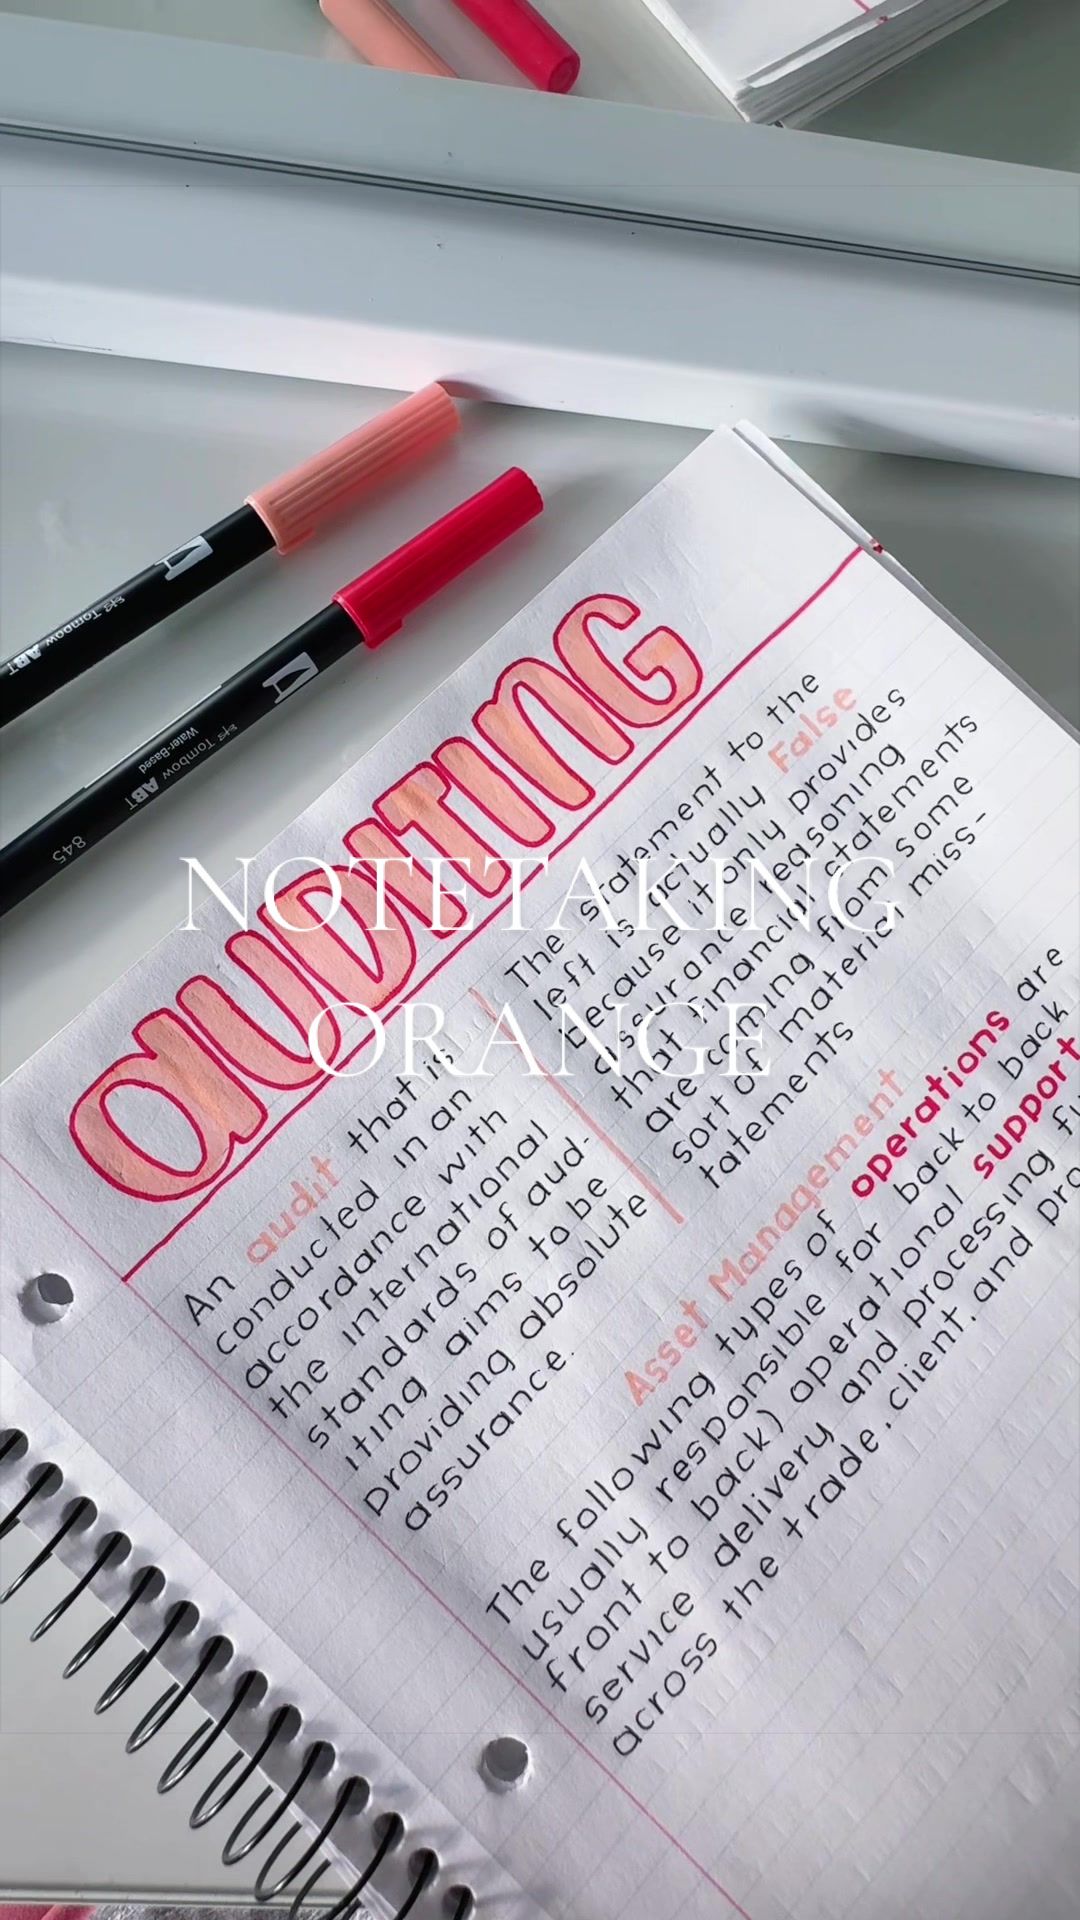 Tombow ABT
Tombow ABT
Water-Based
845
auDITING
NOTETAKING
ORANGE
An audit that is
conducted in an
accordance with
the international
standards of aud-
iting aims to be
providing absolute
assurance.
The statement to the
left is actually False
because it only provides
assurance reasoning
that financial statements
are coming from some
sort of material miss-
tatements
Asset Management
The following types of operations are
usually responsible for back to back
front to back) operational support
service delivery and processing
across the trade, client, and